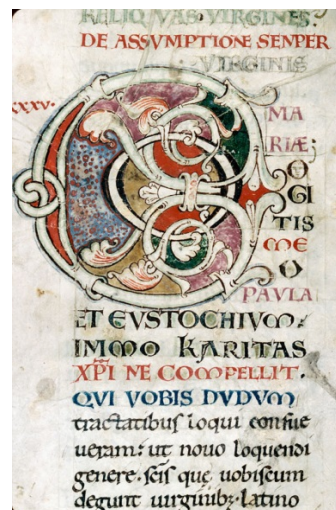 RELIQVAS VIRGINES.
DE ASSVMPTIONE SENPER
VIRGINIS
XXXV.
MA
RIÆ;
C O
GI
TIS
ME
O
PAVLA
ET EVSTOCHIVM:
IMMO KARITAS
XPI NE COMPELLIT.
QVI VOBIS DVDVM
tractatibus loqui consue
ueram: ut nouo loquendi
genere. scis que uobiscum
degunt uirginibꝫ latino